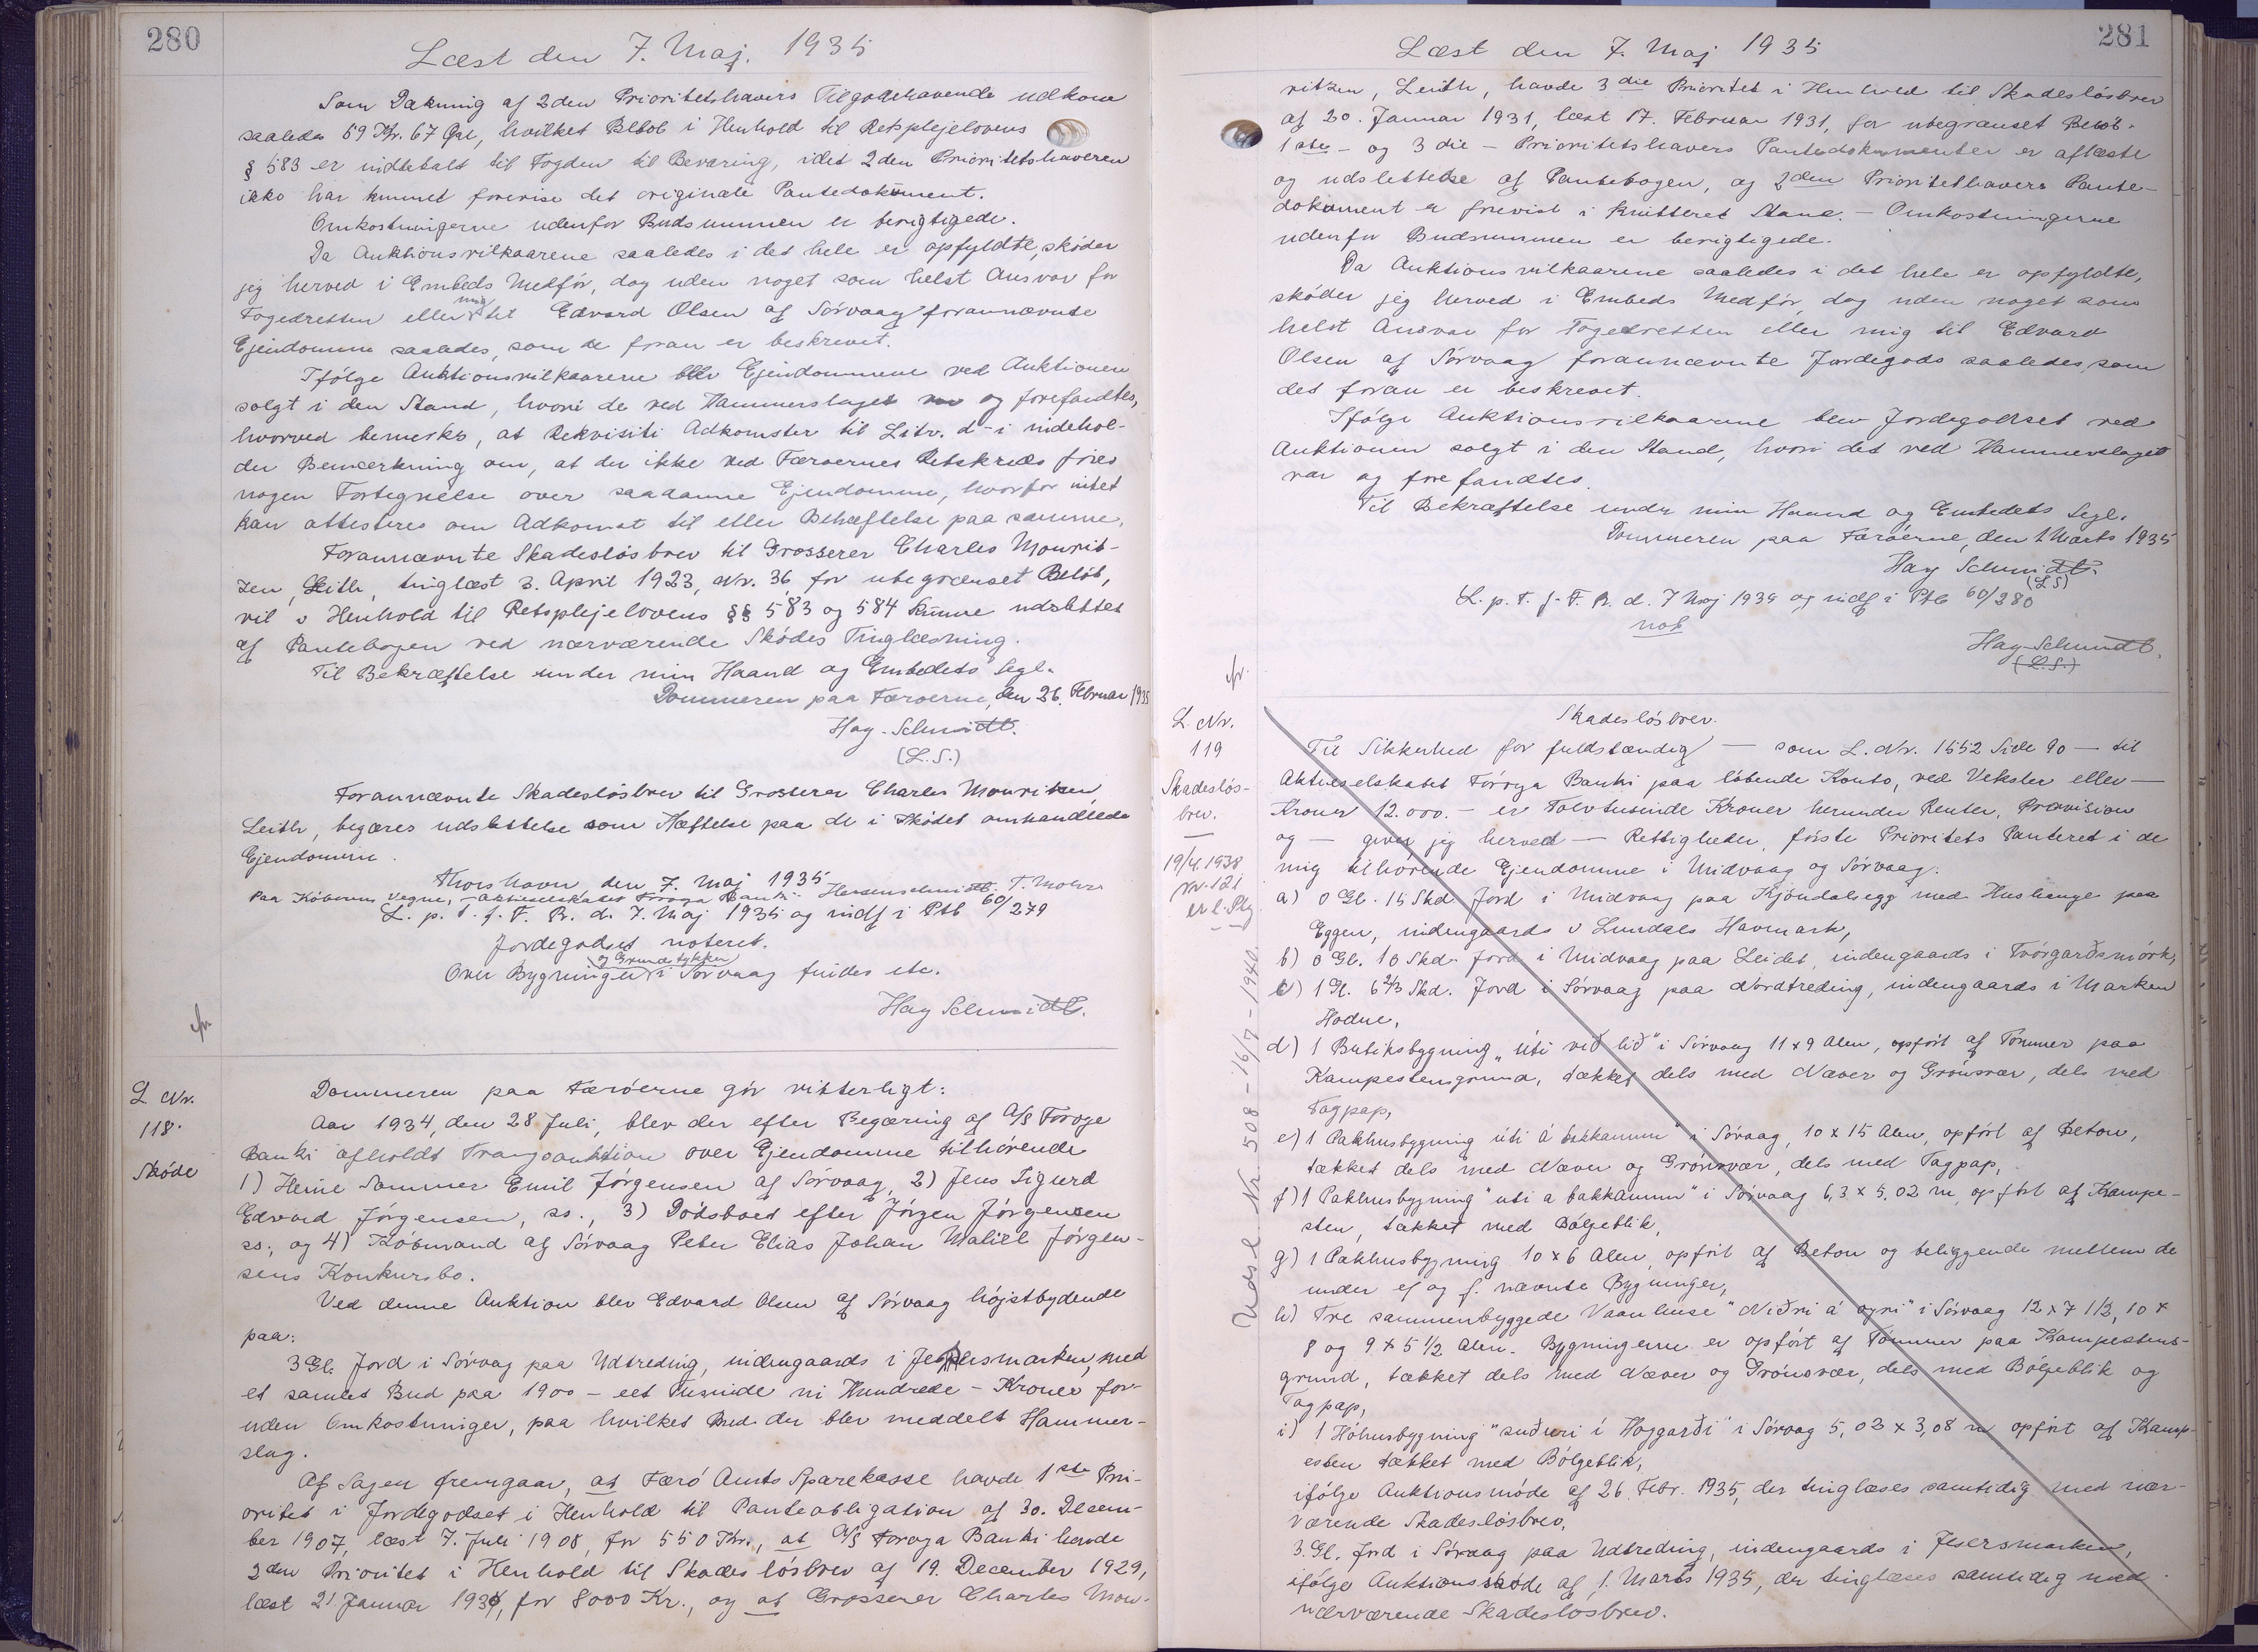 280
Læst den 7. Maj. 1935
Som Dækning af 2den Prioritetshavers Tilgodehavende udkom
saaledes 59 Kr. 67 Øre, hvilket Beløb i Henhold til Retsplejelovens
§ 583 er indbetalt til Fogden til Bevaring, idet 2den Prioritetshaveren
ikke har kunnet forevise det originale Pantedokument.
Omkostningerne udenfor Budsummen er berigtigede.
Da Auktionsvilkaarene saaledes i det hele er opfyldte, skøder
jeg herved i Embeds Medfør, dog uden noget som helst Ansvar for
Fogedretten eller mig til Edvard Olsen af Sörvaag forannævnte
Ejendomme saaledes, som de foran er beskrevet.
Ifølge Auktionsvilkaarene blev Ejendommene ved Auktionen
solgt i den Stand, hvori de ved Hammerslaget var og forefandtes,
hvorved bemerkes, at Rekvisiti Adkomster til Litr. d-i indehol-
der Bemærkning om, at der ikke ved Færøernes Retskreds føres
nogen Fortegnelse over saadanne Ejendomme, hvorfor intet
kan attesteres om Adkomst til eller Behæftelse paa samme.
Forannævnte Skadesløsbrev til Grosserer Charles Mourit-
zen, Leith, tinglæst 3. April 1923, Nr. 36, for ubegrænset Beløb,
vil i Henhold til Retsplejelovens §§ 583 og 584 kunne udslettes
af Pantebogen ved nærværende Skødes Tinglæsning.
Til Bekræftelse under min Haand og Embedets Segl.
Dommeren paa Færøerne, den 26. Februar 1935
Hag. Schmidt.
(L.S.)
Forannævnte Skadesløsbrev til Grosserer Charles Mouritzen,
Leith, begæres udslettelse som Hæftelse paa de i Skødet omhandlede
Ejendomme.
Thorshavn, den 7. Maj 1935
Paa Köberens Vegne, Aktieselskabet Föroya Banki. Heinesschmidt. T. Mohr.
L. p. T. f. F. R. d. 7. Maj 1935 og indf i Ptb 60/279
Jordegodset noteret.
og Grundstykker
Over Bygninger i Sörvaag findes etc.
Hag Schmidt.
L Nr.
118.
Skøde
Dommeren paa Færöerne gör vitterligt:
Aar 1934, den 28 Juli, blev der efter Begæring af A/S Foroya
Banki afholdt Tvangsauktion over Ejendomme tilhørende
1) Heine Sommer Emil Jörgensen af Sörvaag, 2) Jens Sigurd
Edvard Jörgensen, ss., 3) Dödsboet efter Jörgen Jörgensen
ss., og 4) Köbmand af Sörvaag Peter Elias Johan Maliel Jörgen-
sens Konkursbo.
Ved denne Auktion blev Edvard Olsen af Sörvaag höjstbydende
paa:
3 Gl. Jord i Sörvaag paa Udtreding, indengaards i Jesersmarken, med
et samlet Bud paa 1900 - eet Tusinde ni Hundrede - Kroner for-
uden Omkostninger, paa hvilket Bud der blev meddelt Hammer-
slag.
Af Sagen fremgaar, at Færö Amts Sparekasse havde 1ste Pri-
oritet i Jordegodset i Henhold til Panteobligation af 30. Decem-
ber 1907, læst 7. Juli 1908, for 550 Kr., at A/S Foroya Banki havde
2den Prioritet i Henhold til Skadeslösbrev af 19. December 1929,
læst 21 Januar 1930, for 8000 Kr., og at Grosserer Charles Mou-
281
Læst den 7. Maj 1935
ritzen, Leith, havde 3die Prioritet i Henhold til Skadeslösbrev
af 20. Januar 1931, læst 17. Februar 1931, for ubegrænset Belöb.
1ste - og 3die - Prioritetshavers Pantedokumenter er aflæste
og udslettelse af Pantebogen, og 2den Prioritethavers Pante-
dokument er forevist i kvitteret Stand. - Omkostningerne
udenfor Budsummen er berigtigede.
Da Auktionsvilkaarene saaledes i det hele er opfyldte,
sköder jeg herved i Embeds Medför, dog uden noget som
helst Ansvar for Fogedretten eller mig til Edvard
Olsen af Sörvaag forannævnte Jordegods saaledes, som
det foran er beskrevet.
Ifölge Auktionsvilkaarene blev Jordegodset ved
Auktionen solgt i den Stand, hvori det ved Hammerslaget
var og forefandtes.
Til Bekræftelse under min Haand og Embedets Segl.
Dommeren paa Færöerne, den 1 Marts 1935
Hag Schmidt.
(L S)
L. p. T. f. F. R. d. 7 Maj 1935 og indf i Ptb 60/280
not
Hag Schmidt.
(L.S.)
L. Nr.
119
Skadeslös-
brev.
19/4.1938
Nr. 121
Udsl. Nr. 508 - 16/7 - 1940.
Skadeslösbrev.
Til Sikkerhed for fuldstændig - som L. Nr. 1552 Side 90 - til
Aktieselskabet Föroya Banki paa löbende Konto, ved Veksler eller -
Kroner 12.000. - er Tolvtusinde Kroner herunder Renter, Provision
og - giver jeg herved - Rettigheder, förste Prioritets Panteret i de
mig tilhörende Ejendomme i Midvaag og Sörvaag.
a) 0 Gl. 15 Skd. Jord i Midvaag paa Kjöndalsegg med Huslænge paa
Eggen, indengaards i Lundals Havmark,
b) 0 Gl. 10 Skd. Jord i Midvaag paa Leidet, indengaards i Tvörgarðsmörk,
c) 1 Gl. 6 2/3 Skd. Jord i Sörvaag paa Nordtreding, indengaards i Marken
Hodne,
d) 1 Butiksbygning „úti við lið" i Sörvaag 11 x 9 Alen, opfört af Tömmer paa
Kampestensgrund, tækket dels med Næver og Grönsvær, dels med
Tagpap,
e) 1 Pakhusbygning úti á bakkanum" i Sörvaag, 10 x 15 Alen, opfört af Beton,
tækket dels med Næver og Grönsvær, dels med Tagpap,
f) 1 Pakhusbygning "uti a bakkanum" i Sörvaag 6,3 x 5,02 m, opfört af Kampe-
sten, tækket med Bölgeblik,
g) 1 Pakhusbygning 10 x 6 Alen, opfört af Beton og beliggende mellem de
under e) og f. nævnte Bygninger,
h) Tre sammenbyggede Vaanhuse "Niðri á oyri" i Sörvaag 12 x 7 1/2, 10 x
8 og 9 x 5 1/2 Alen. Bygningerne er opfört af Tömmer paa Kampestens-
grund, tækket dels med Næver og Grönsvær, dels med Bölgeblik og
Tagpap,
i) 1 Höhusbygning "suðuri í Hoygarði" i Sörvaag 5,03 x 3,08 m opfört af Kamp-
esten tækket med Bölgeblik,
ifölge Auktionsmöde af 26. Febr. 1935, der tinglæses samtidig med nær-
værende Skadeslösbrev,
3. Gl. Jord i Sörvaag paa Udtreding, indengaards i Jesersmarken,
ifölge Auktionssköde af 1. Marts 1935, der tinglæses samtidig med
nærværende Skadeslösbrev.